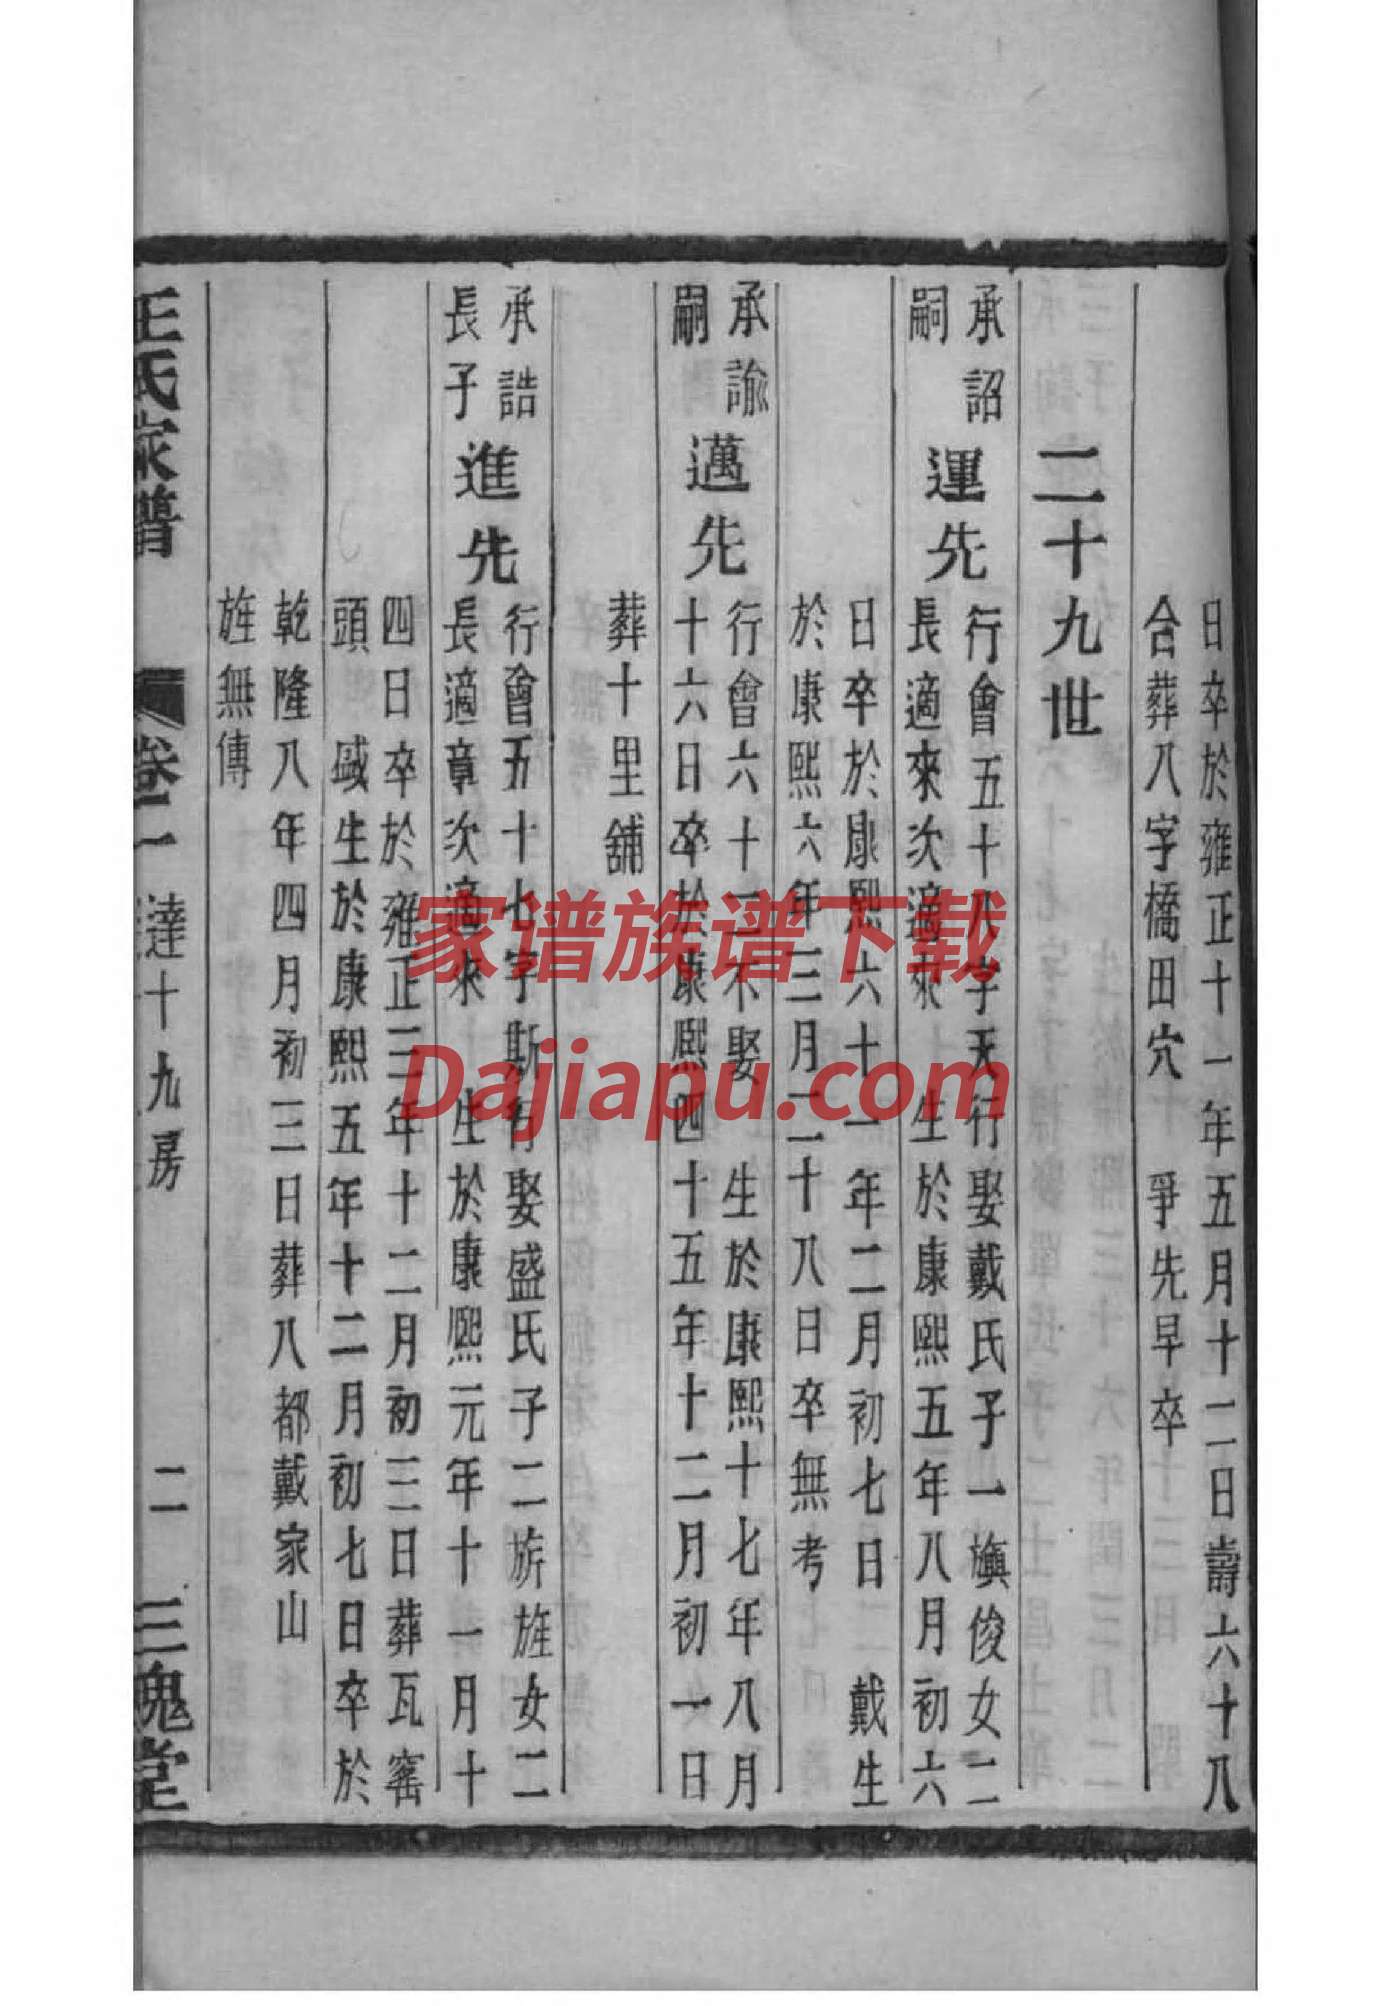 日卒於雍正十一年五月十二日壽六十八
合葬八字橋田穴　爭先早卒
二十九世
承詔
嗣
運先
行會五十八字天行娶戴氏子一旟俊女二
長適來次適來　生於康熙五年八月初六
日卒於康熙六十一年二月初七日　戴生
於康熙六年三月二十八日卒無考
承諭
嗣
邁先
行會六十三不娶　生於康熙十七年八月
十六日卒於康熙四十五年十二月初一日
葬十里舖
承誥
長子
進先
行會五十七字斯有娶盛氏子二旂旌女二
長適章次適來　生於康熙元年十一月十
四日卒於雍正三年十二月初三日葬瓦窰
頭　盛生於康熙五年十二月初七日卒於
乾隆八年四月初三日葬八都戴家山
旌無傳
王氏家譜　卷二　達十九房　二　三槐堂
家谱族谱下载
Dajiapu.com